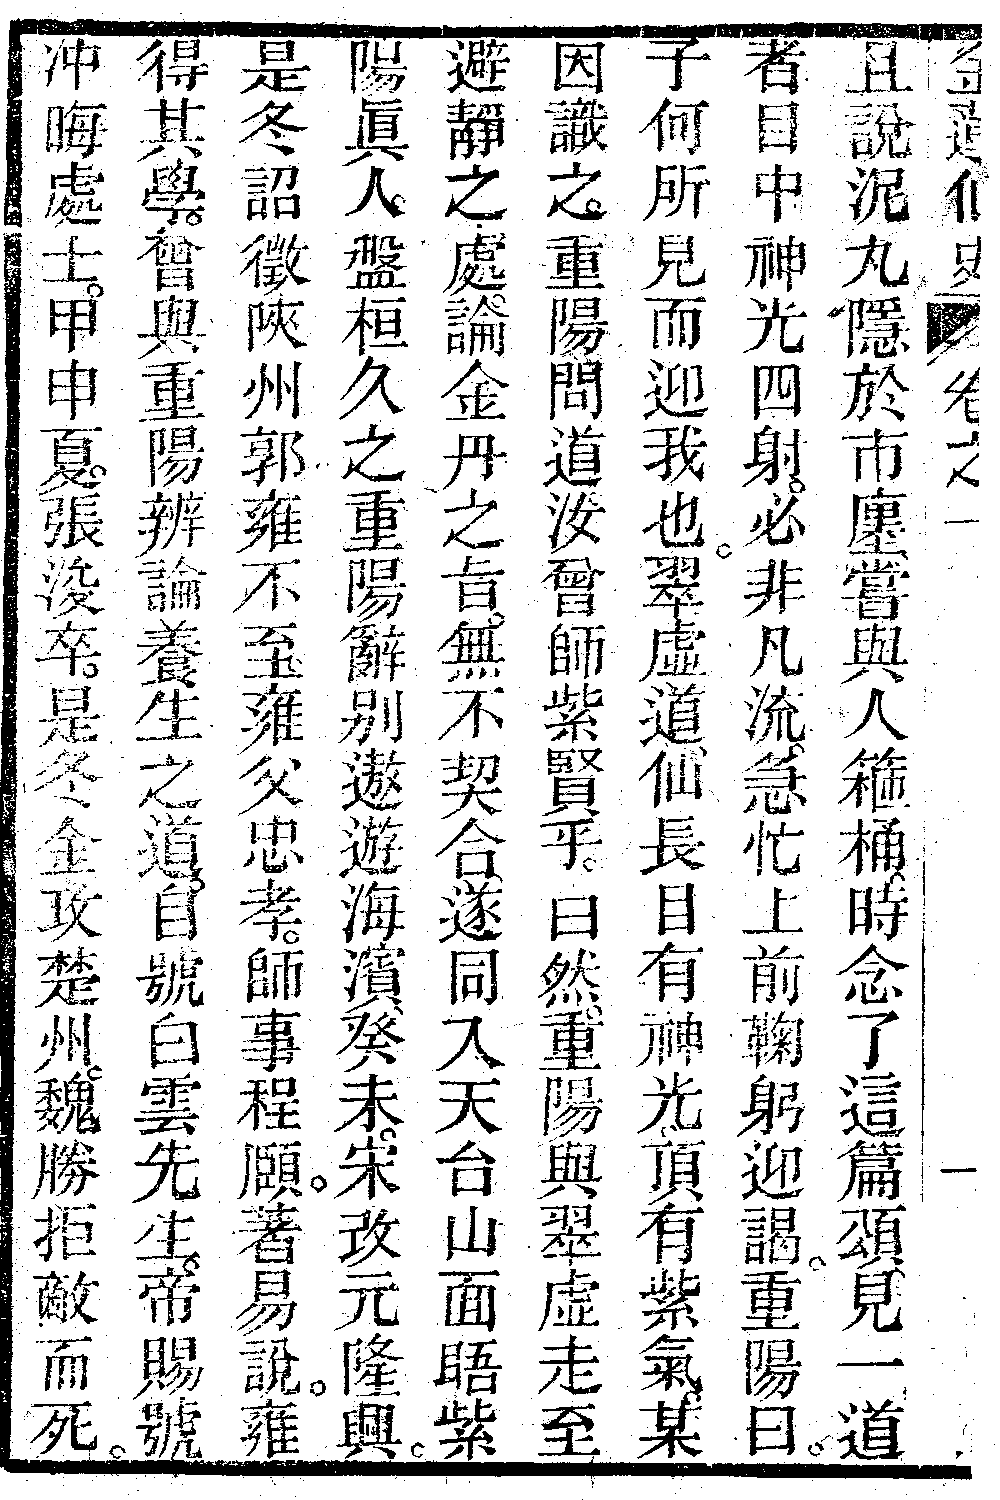 金蓮仙史 卷之一 一
且說泥丸隱於市廛嘗與人箍桶時念了這篇頌見一道
者目中神光四射必非凡流急忙上前鞠躬迎謁重陽曰
子何所見而迎我也翠虛道仙長目有神光頂有紫氣某
因識之重陽問道汝曾師紫賢乎曰然重陽與翠虛走至
避靜之處論金丹之旨無不契合遂同入天台山面晤紫
陽眞人盤桓久之重陽辭别遨遊海濱癸未宋改元隆興
是冬詔徵陝州郭雍不至雍父忠孝師事程頤著易說雍
得其學曾與重陽辨論養生之道自號白雲先生帝賜號
冲晦處士甲申夏張浚卒是冬金攻楚州魏勝拒敵而死